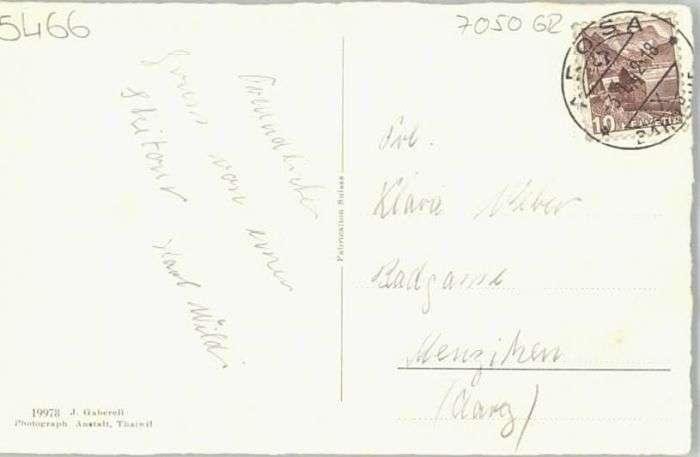 5466
7050 GR
AROSA
10
HELVETIA
Freundlicher
Gruss von einer
Skitour
Karl Wildi
Fabrication Suisse
Frl.
Klara Weber
Badgasse
Menziken
(Aarg)
19978 J. Gaberell
Photograph Anstalt, Thalwil